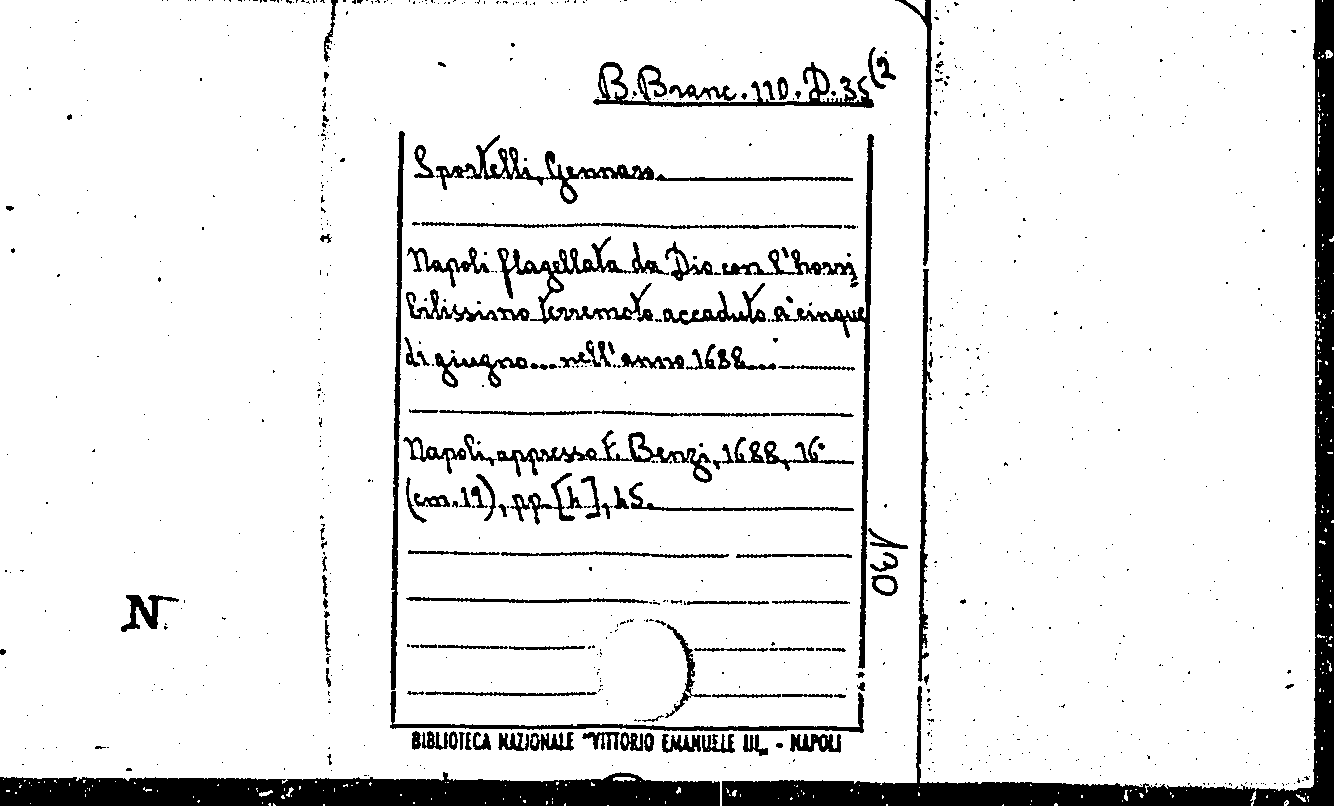 B. Branc. 110. D. 35 (2
Sportelli, Gennaro.
Napoli flagellata da Dio con l'horri
bilissimo terremoto accaduto a' cinque
di giugno... nell'anno 1688....
Napoli, appresso F. Benzi, 1688, 16°
(cm. 19), pp. [4], 45.
130
N
BIBLIOTECA NAZIONALE "VITTORIO EMANUELE III„ - NAPOLI